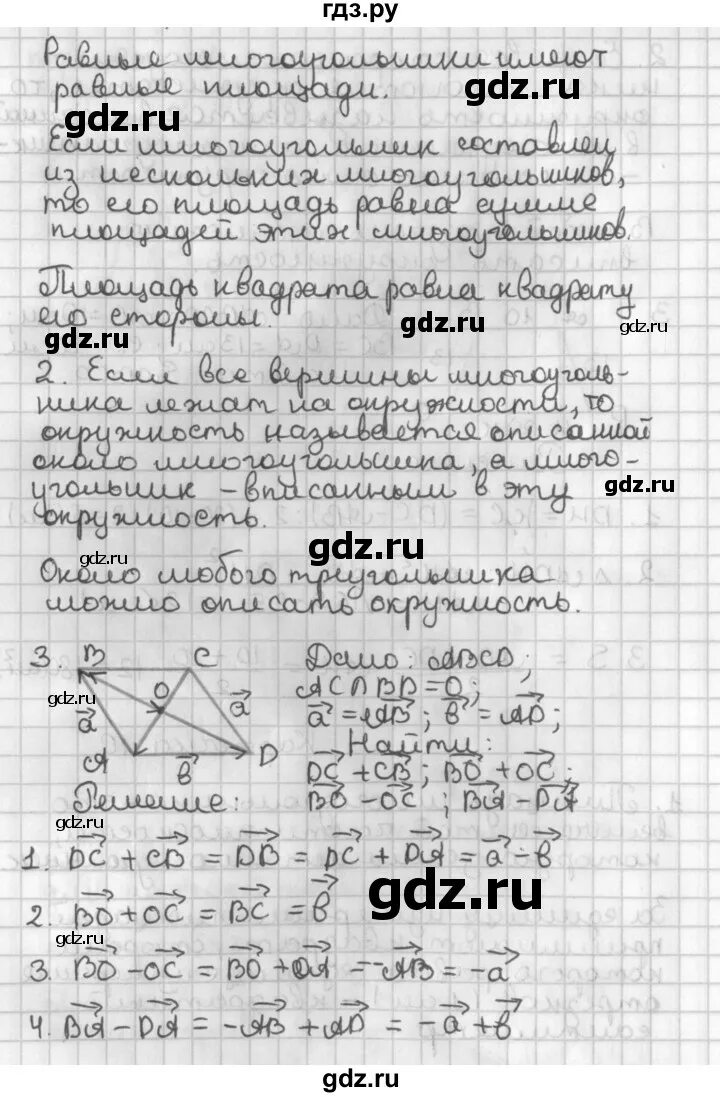 гдз.ру
Равные многоугольники имеют
равные площади.
gdz.ru
gdz.ru
Если многоугольник составлен
из нескольких многоугольников,
то его площадь равна сумме
площадей этих многоугольников.
gdz.ru
gdz.ru
Площадь квадрата равна квадрату
его стороны.
gdz.ru
gdz.ru
gdz.ru
2. Если все вершины многоуголь-
ника лежат на окружности, то
окружность называется описанной
около многоугольника, а много-
угольник - вписанным в эту
окружность.
gdz.ru
gdz.ru
gdz.ru
Около любого треугольника
можно описать окружность.
3. B C Дано: ABCD;
O AC∩BD=O;
gdz.ru
a⃗ a⃗ a⃗ = AB⃗; b⃗ = AD⃗;
A b⃗ D Найти:
DC⃗ + CB⃗; BO⃗ + OC⃗;
Решение: BO⃗ - OC⃗; BA⃗ - DA⃗
gdz.ru
1. DC⃗ + CB⃗ = DB⃗ = DC⃗ + DA⃗ = a⃗ - b⃗
gdz.ru
2. BO⃗ + OC⃗ = BC⃗ = b⃗
gdz.ru
3. BO⃗ - OC⃗ = BO⃗ + OA⃗ = -AB⃗ = -a⃗
4. BA⃗ - DA⃗ = -AB⃗ + AD⃗ = -a⃗ + b⃗
gdz.ru